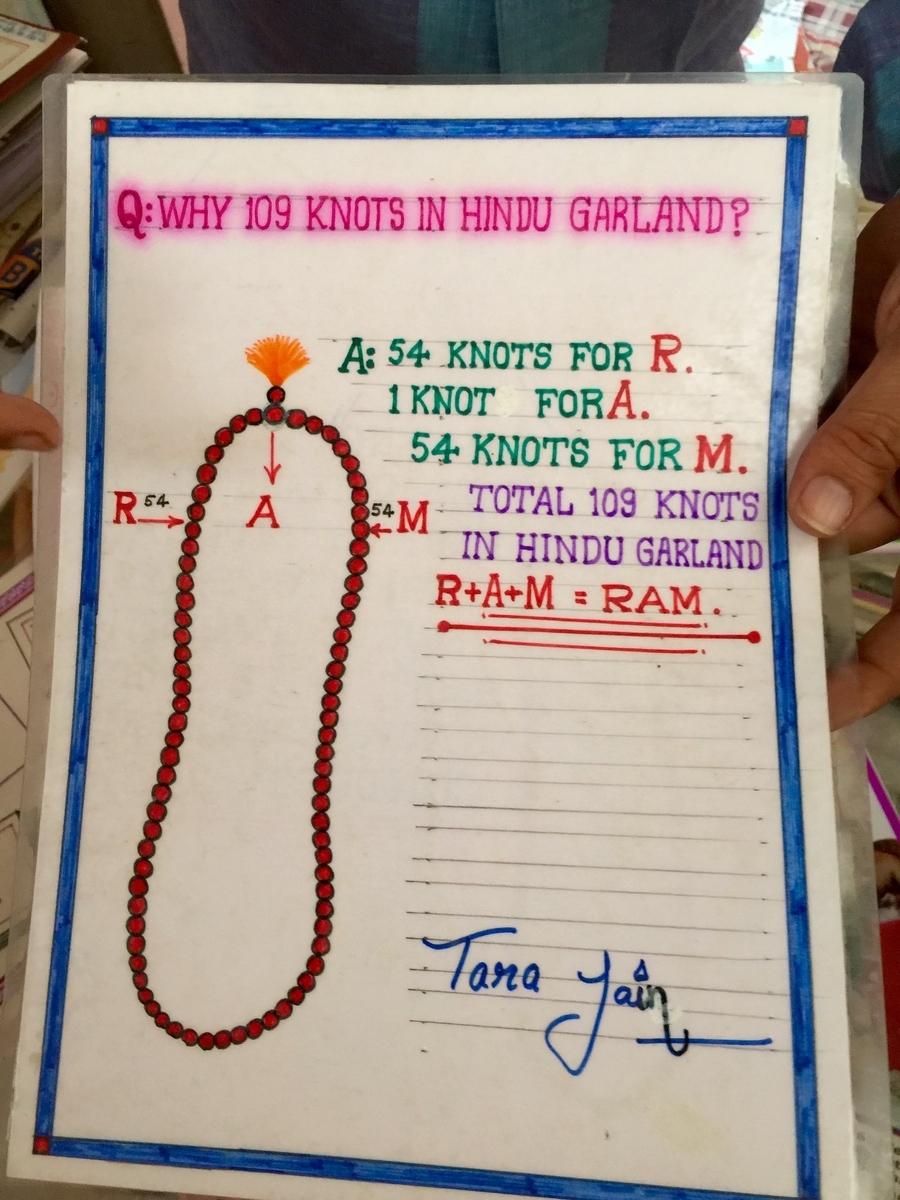 Q: WHY 109 KNOTS IN HINDU GARLAND?
A: 54 KNOTS FOR R.
1 KNOT FOR A.
54 KNOTS FOR M.
TOTAL 109 KNOTS
IN HINDU GARLAND
R+A+M = RAM.
R 54
A
54 M
Tara Jain